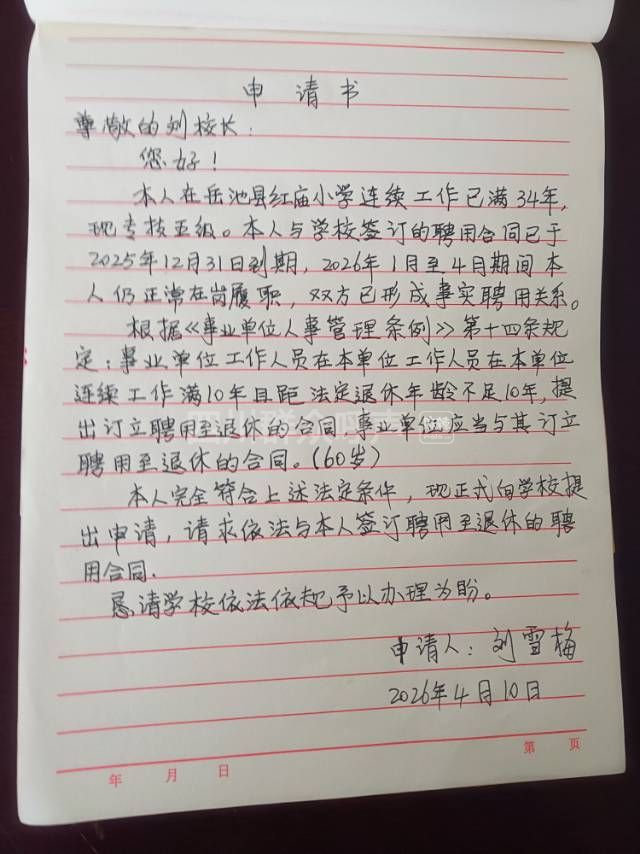 申请书
尊敬的刘校长：
您好！
本人在岳池县红庙小学连续工作已满34年，
现专技五级。本人与学校签订的聘用合同已于
2025年12月31日到期，2026年1月至4月期间本
人仍正常在岗履职，双方已形成事实聘用关系。
根据《事业单位人事管理条例》第十四条规
定：事业单位工作人员在本单位工作人员在本单位
连续工作满10年且距法定退休年龄不足10年，提
出订立聘用至退休的合同，事业单位应当与其订立
聘用至退休的合同。（60岁）
本人完全符合上述法定条件，现正式向学校提
出申请，请求依法与本人签订聘用至退休的聘
用合同.
恳请学校依法依规予以办理为盼。
申请人：刘雪梅
2026年4月10日
年 月 日
第 页
四川群众呼声